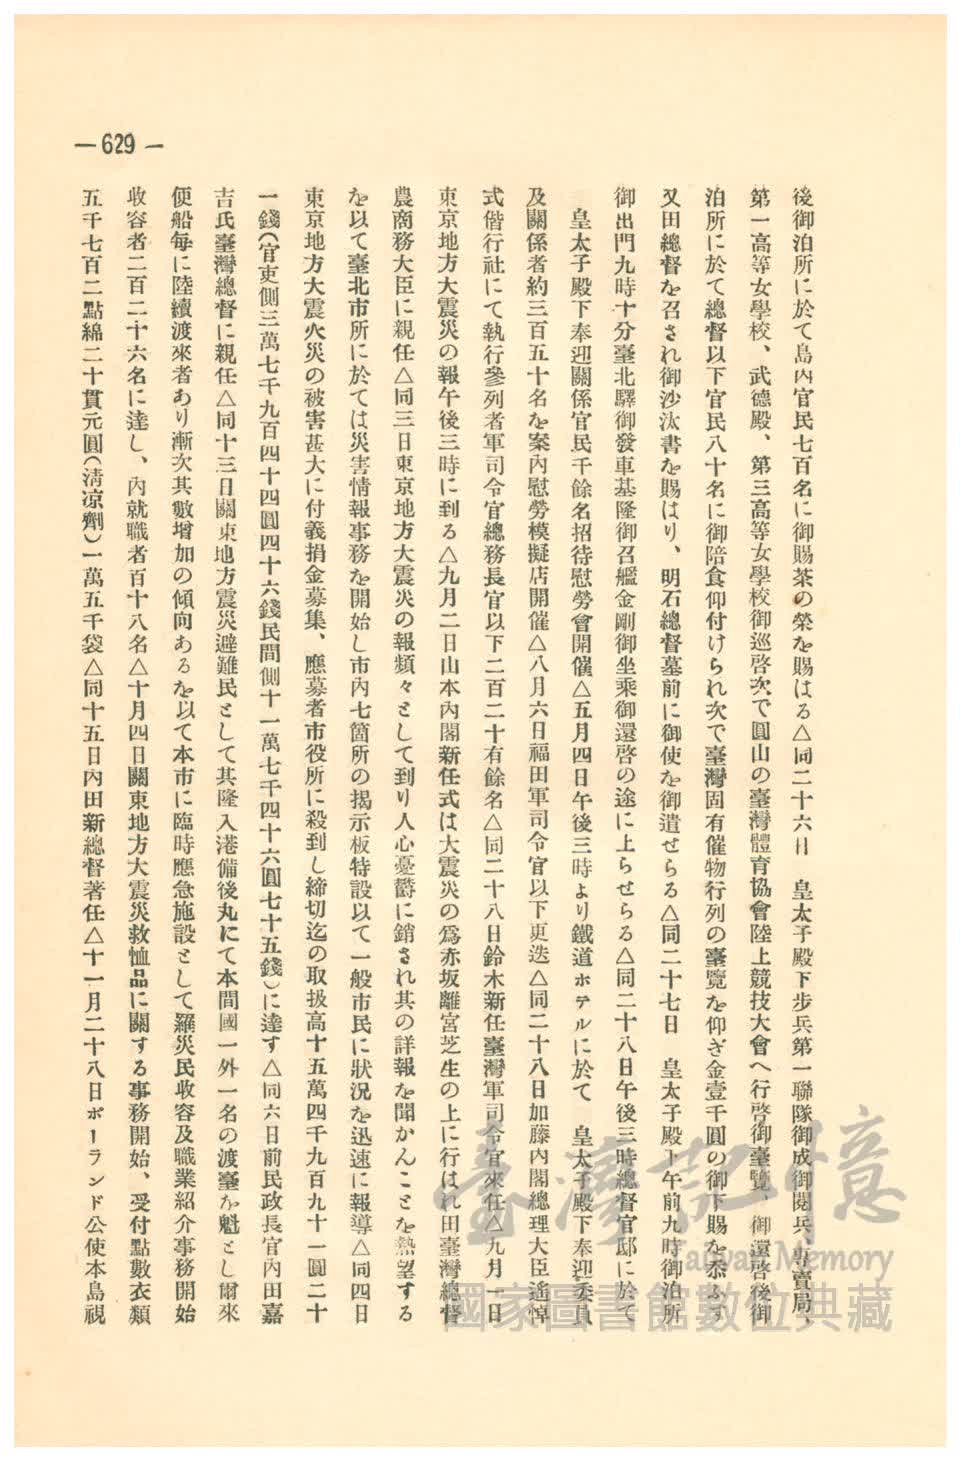 —629—
後御泊所に於て島內官民七百名に御賜茶の榮を賜はる△同二十六日　皇太子殿下步兵第一聯隊御成御閱兵、專賣局、
第一高等女學校、武德殿、第三高等女學校御巡啓次で圓山の臺灣體育協會陸上競技大會へ行啓御臺覽、御還啓後御
泊所に於て總督以下官民八十名に御陪食仰付けられ次で臺灣固有催物行列の臺覽を仰ぎ金壹千圓の御下賜を忝ふす
又田總督を召され御沙汰書を賜はり、明石總督墓前に御使を御遣せらる△同二十七日　皇太子殿下午前九時御泊所
御出門九時十分臺北驛御發車基隆御召艦金剛御坐乘御還啓の途に上らせらる△同二十八日午後三時總督官邸に於て
皇太子殿下奉迎關係官民千餘名招待慰勞會開催△五月四日午後三時より鐵道ホテルに於て　皇太子殿下奉迎委員
及關係者約三百五十名を案內慰勞模擬店開催△八月六日福田軍司令官以下更迭△同二十八日加藤內閣總理大臣遙悼
式偕行社にて執行參列者軍司令官總務長官以下二百二十有餘名△同二十八日鈴木新任臺灣軍司令官來任△九月一日
東京地方大震災の報午後三時に到る△九月二日山本內閣新任式は大震災の爲赤坂離宮芝生の上に行はれ田臺灣總督
農商務大臣に親任△同三日東京地方大震災の報頻々として到り人心憂欝に銷され其の詳報を聞かんことを熱望する
を以て臺北市所に於ては災害情報事務を開始し市內七箇所の揭示板特設以て一般市民に狀況を迅速に報導△同四日
東京地方大震火災の被害甚大に付義捐金募集、應募者市役所に殺到し締切迄の取扱高十五萬四千九百九十一圓二十
一錢(官吏側三萬七千九百四十四圓四十六錢民間側十一萬七千四十六圓七十五錢)に達す△同六日前民政長官內田嘉
吉氏臺灣總督に親任△同十三日關東地方震災避難民として其隆入港備後丸にて本間國一外一名の渡臺を魁とし爾來
便船每に陸續渡來者あり漸次其數增加の傾向あるを以て本市に臨時應急施設として羅災民收容及職業紹介事務開始
收容者二百二十六名に達し、內就職者百十八名△十月四日關東地方大震災救恤品に關する事務開始、受付點數衣類
五千七百二點綿二十貫元圓(淸凉劑)一萬五千袋△同十五日內田新總督著任△十一月二十八日ポーランド公使本島視
臺灣記憶
Taiwan Memory
國家圖書館數位典藏